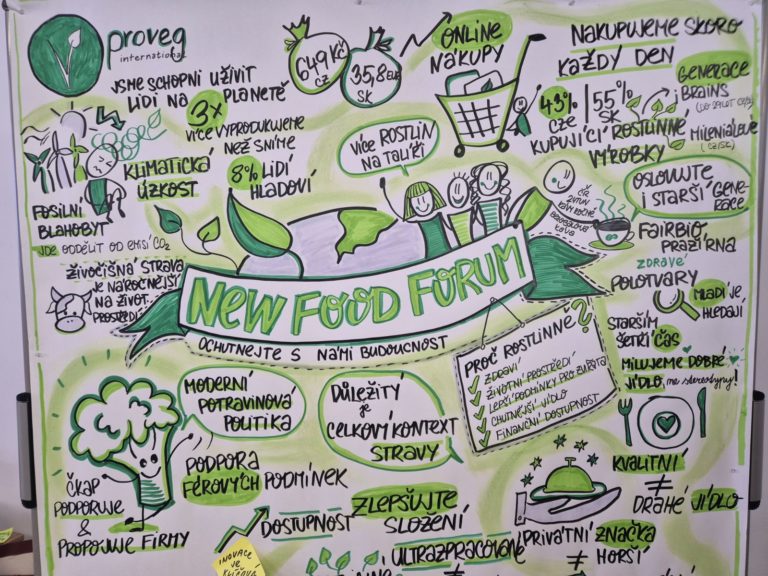 proveg
international
JSME SCHOPNI UŽIVIT
LIDÍ NA 3x PLANETĚ
VÍCE VYPRODUKUJEME
NEŽ SNÍME
8% LIDÍ
HLADOVÍ
649 Kč
CZ
35,8 EUR
SK
ONLINE
NÁKUPY
NAKUPUJEME SKORO
KAŽDÝ DEN
43%
CZE
55%
SK
KUPUJÍCÍ ROSTLINNÉ
VÝROBKY
GENERACE
BRAINS
MILENIÁLOVÉ
(CZ/SK)
KLIMATICKÁ
ÚZKOST
FOSILNÍ
BLAHOBYT
JDE ODDĚLIT OD EMISÍ CO2
VÍCE ROSTLIN
NA TALÍŘI
OSLOVUJTE
I STARŠÍ GENE-
RACE
FAIRBIO
PRAŽÍRNA
ZDRAVÉ
POLOTVARY
MLADÍ JE
HLEDAJÍ
STARŠÍM
ŠETŘÍ ČAS
ŽIVOČIŠNÁ STRAVA
JE NÁROČNĚJŠÍ
NA ŽIVOT.
PROSTŘEDÍ
NEW FOOD FORUM
OCHUTNEJTE S NÁMI BUDOUCNOST
PROČ ROSTLINNĚ?
ZDRAVÍ
ŽIVOTNÍ PROSTŘEDÍ
LEPŠÍ PODMÍNKY PRO ZVÍŘATA
CHUTNĚJŠÍ JÍDLO
FINANČNÍ DOSTUPNOST
MILUJEME DOBRÉ
JÍDLO, ne stereotypy!
MODERNÍ
POTRAVINOVÁ
POLITIKA
DŮLEŽITÝ
je
CELKOVÝ KONTEXT
STRAVY
PODPORA
FÉROVÝCH PODMÍNEK
ČKAP
PODPORUJE
&
PROPOJUJE FIRMY
DOSTUPNOST
ZLEPŠUJTE
SLOŽENÍ
KVALITNÍ
≠
DRAHÉ JÍDLO
PRIVÁTNÍ ZNAČKA
≠ HORŠÍ
INOVACE
JE
KLÍČOVÁ
ULTRAZPRACOVANÉ